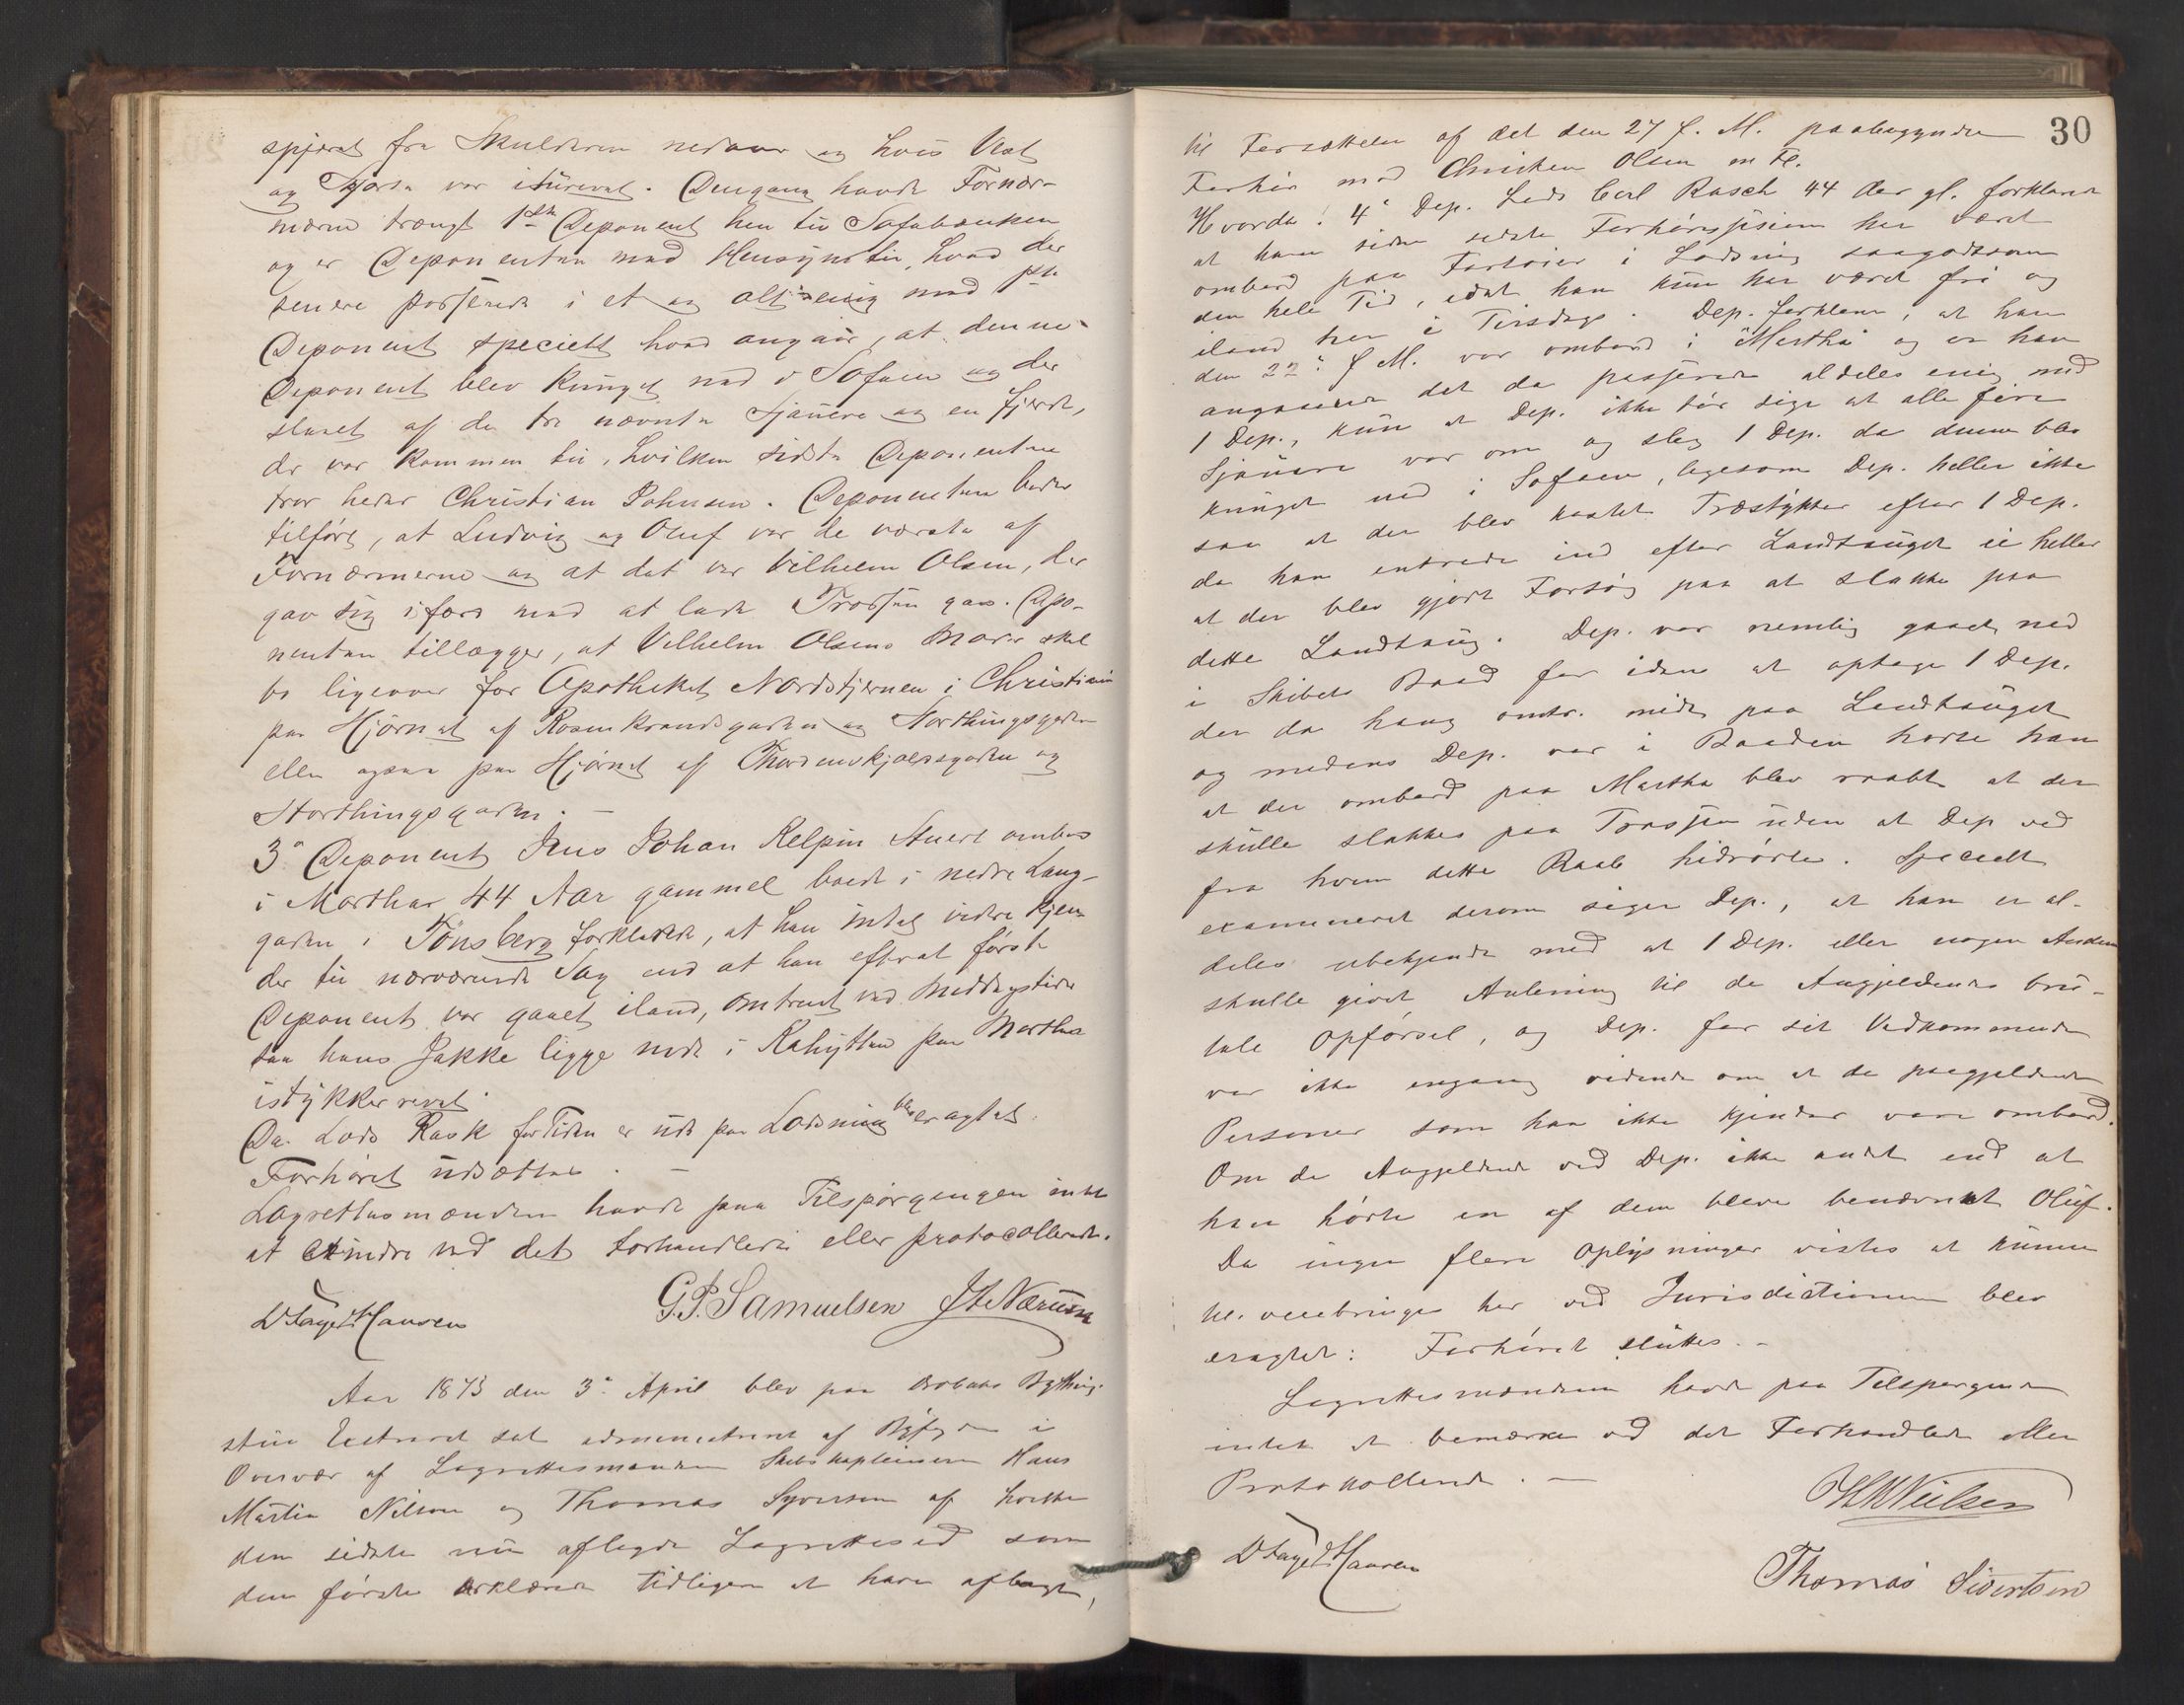 spjæret fra Skulderen nedover og hvis Vest
og Skjorte var iturevet. Dengang havde Fornær-
merne trængt 1ste Deponent hen til Sofabænken
og er Deponenten med Hensyn til, hvad der
senere passerede i et og alt enig med 1ste
Deponent specielt hvad angaar, at denne
Deponent blev kuuget ned i Sofaen og der
slaaet af de tre nævnte Sjauere og en fjerde,
der var kommen til, hvilken sidste Deponenten
tror heder Christian Johnsen. Deponenten beder
tilført, at Ludvig og Oluf var de værste af
Fornærmerne og at det var Vilhelm Olsen, der
gav sig ifærd med at lade Trossen gaa. Depo-
nenten tillægger, at Vilhelm Olsens Moder skal
bo ligeover for Apotheket Nordstjernen i Christiania
paa Hjørnet af Rosenkrandsgaden og Storthingsgaden
eller ogsaa paa Hjørnet af Thordenskjoldsgaden og
Storthingsgaden. —
3die Deponent Jens Johan Relpin Stuert ombord
i Martha 44 Aar gammel boede i nedre Lang-
gaden i Tønsberg forklarede, at han intet videre kjen-
der til nærværende Sag end at han efterat første
Deponent var gaaet iland, omtrent ved Middagstider
saa hans Jakke ligge nede i Kahytten paa Martha
istykkerrevet.
Da Lods Rask for Tiden er ude paa Lodsning blev eragtet.
Forhøret udsættes. —
Lagrettesmændene havde paa Tilspørgengen intet
at erindre ved det forhandlede eller protocollerede.
D Faye Hansen G. P. Samuelsen J H Nærum
Aar 1873 den 3die April blev paa Drøbaks Bything-
stue Extraret sat administreret af Byfogden i
Overvær af Lagrettesmændene Skibskapteinerne Hans
Martin Nilsen og Thomas Syversen af hvilke
den sidste nu aflagde Lagretteseed som
den første erklærede tidligere at have aflagt,
30
til Fortsættelse af det den 27 f. M. paabegyndte
Forhør mod Christian Olsen m Fl.
Hvorda: 4de Dep. Lods Carl Rasch 44 Aar gl. forklarede
at han siden sidste Forhørssession har været
ombord paa Fartøier i Lodsning saagodtsom
den hele Tid, idet han kun har været fri og
iland her i Tirsdags. Dep. forklarer, at han
den 22de f M. var ombord i "Martha" og er han
angaaende det da passerede aldeles enig med
1 Dep., kun at Dep. ikke tør sige at alle fire
Sjauere var om og slog 1 Dep. da denne blev
kuuget ned i Sofaen, ligesom Dep. heller ikke
saa at der blev kastet Træstykker efter 1 Dep.
da han entrede ind efter Landtauget ei heller
at der blev gjort Forsøg paa at slakke paa
dette Landtaug. Dep. var nemlig gaaet ned
i Skibets Baad for iden at optage 1 Dep.
der da hang omtr. midt paa Landtauget
og medens Dep. var i Baaden hørte han
at der ombord paa Martha blev raabt at der
skulle slakkes paa Trossen uden at Dep ved
fra hvem dette Raab hidrørte. Specielt
examineret derom siger Dep., at han er al-
deles ubekjendt med at 1 Dep. eller nogen Anden
skulle givet Anledning til de Angjeldendes bru-
tale Opførsel, og Dep. for sit Vedkommende
var ikke engang vidende om at de paagjeldende
Personer som han ikke kjender vare ombord.
Om de Angjeldende ved Dep. ikke andet end at
han hørte en af dem bleve benævnt Oluf.
Da ingen flere Oplysninger vistes at kunne
til veiebringes her ved Jurisdictionen blev
eragtet: Forhøret sluttes. —
Lagrettesmændene havde paa Tilspørgende
intet at bemærke ved det Forhandlede eller
Protokollerede. —
H M Nielsen
D Faye Hansen
Thomas Sivertsen